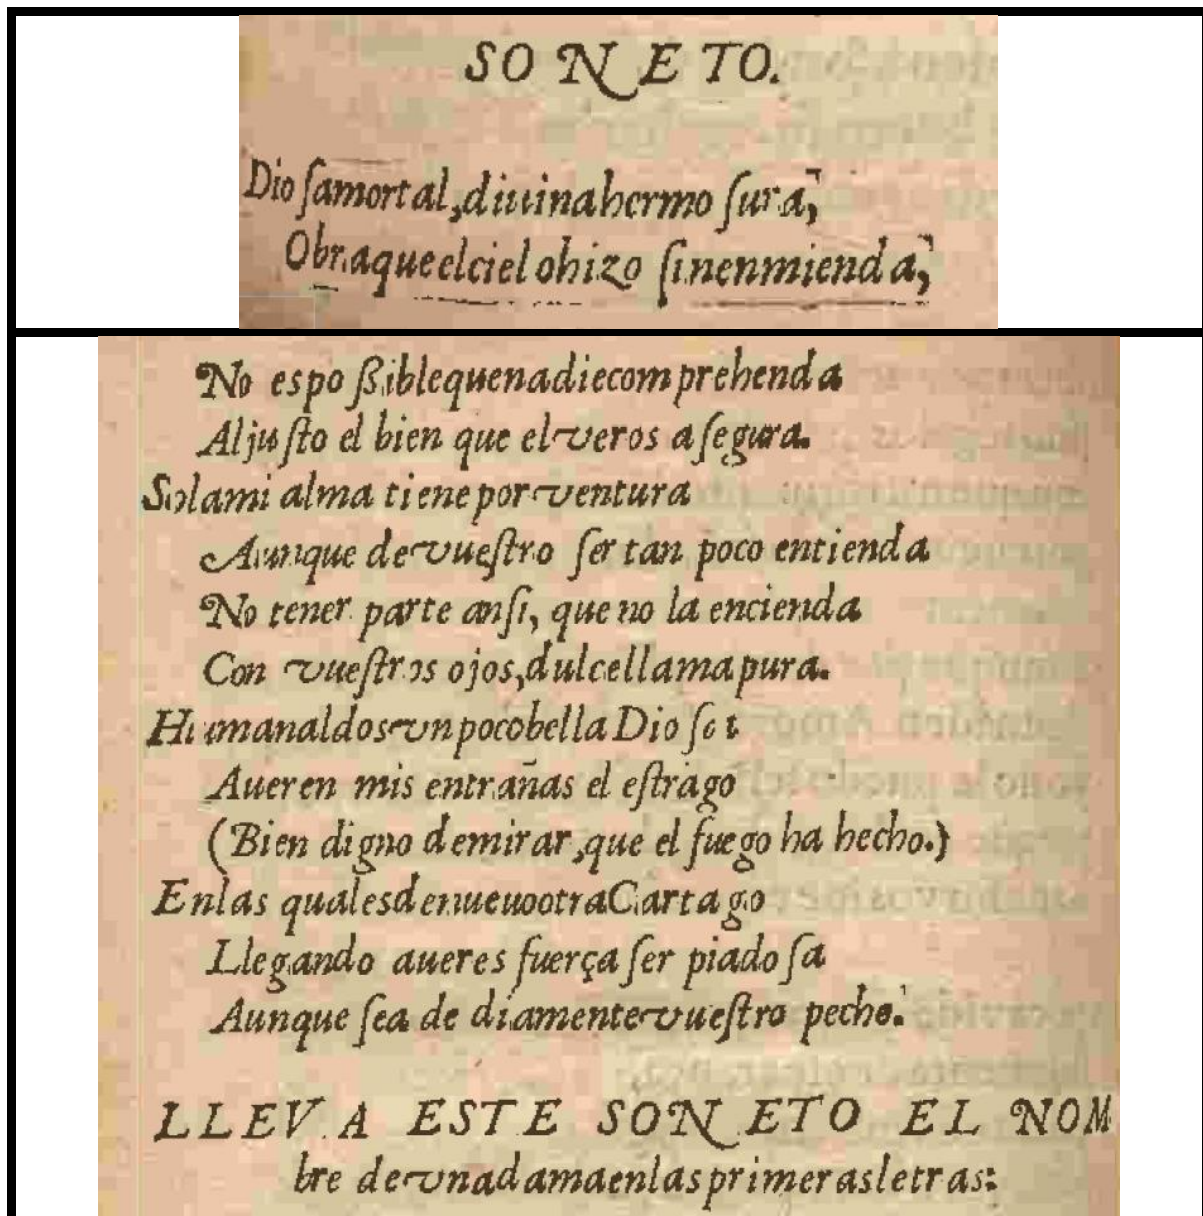 SONETO.
Diosa mortal, diuina hermosura,
Obra que el cielo hizo sin enmienda,
No es poßible que nadie comprehenda
Al justo el bien que el veros asegura.
Sola mi alma tiene por ventura
Aunque de vuestro ser tan poco entienda
No tener parte ansi, que no la encienda
Con vuestros ojos, dulce llama pura.
Humanaldos vn poco bella Diosa
A ver en mis entrañas el estrago
(Bien digno de mirar, que el fuego ha hecho.)
En las quales de nueuo otra Cartago
Llegando a ver es fuerça ser piadosa
Aunque sea de diamente vuestro pecho.
LLEVA ESTE SONETO EL NOM
bre de vna dama en las primeras letras: